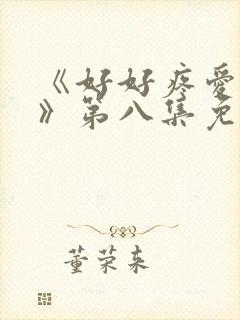 《好好疼爱
》第八集免
董荣来